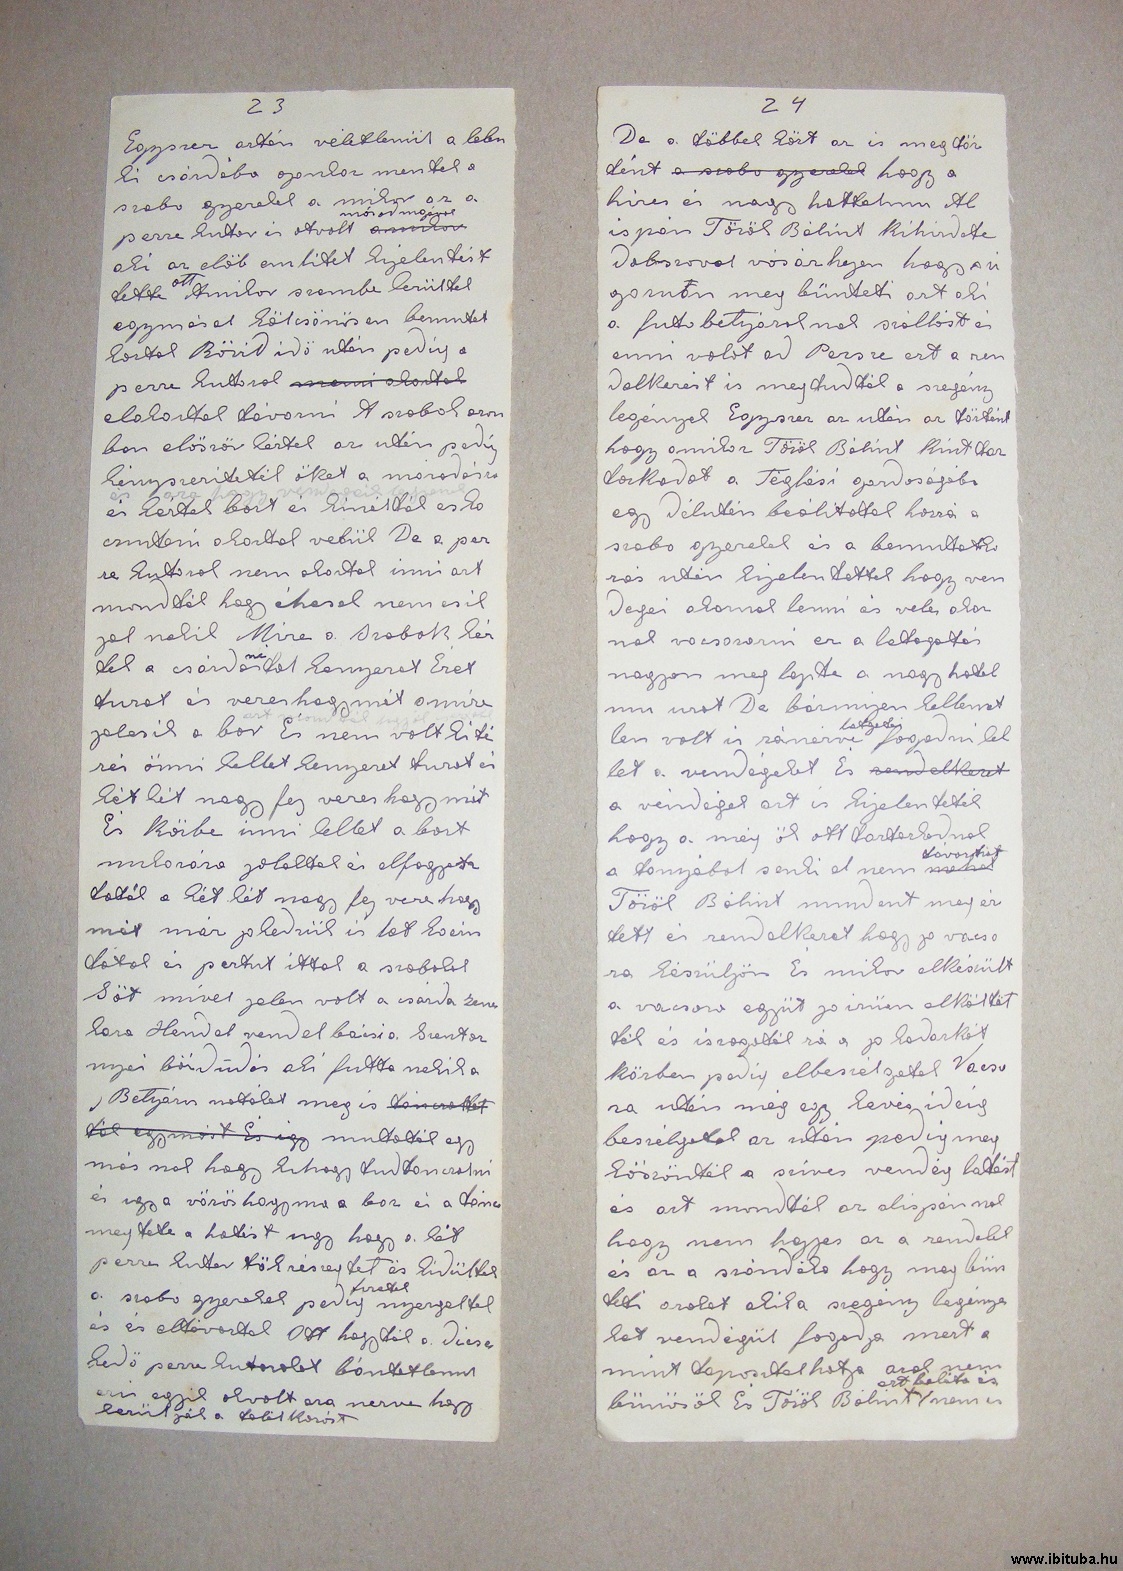 23
Egyszer aztán véletlenül a lebu
ki csárdába azonkor mentek a
szabo gyerekek a mikor az a
másodmagával
perze kutor is otvolt amikor
aki az elöb emlitet kijelentést
ott
tette Amikor szembe kerültek
egymásal kölcsönösen bemutat
koztak Rövid idö után pedig a
perze kutorok menni akartak
elakartak távozni A szabok azon
ban elöször kértek az után pedig
kényszeritették öket a maradásra
és kértek bort és kinálták esko
czintani akartak velük De a per
ze kutorok nem akartak inni azt
mondták hogy éhesek nem esik
jol nekik Mire a Szabok kér
ni
tek a csárdástol kenyeret Éret
turot és vereshagymát amire
jolesik a bor És nem volt kité
rés önni kellet kenyeret turot és
két két nagy fej vereshagymát
És Körbe inni kellet a bort
mikorára jolaktak és elfogyasz
toták a két két nagy fej veres hagy
mát már jokedvük is let kocin
totak és pertut ittak a szabokal
Söt mivel jelen volt a csárda zene
kara Hendel vendel bácsi a Szentor
nyai bördudás aki futta nekik a
Betyáros notákat meg is tancoltat
ták egymást És igy mutoták egy
más nak hogy kihogy tud tancolni
és igy a vöröshagyma a bor és a tánc
megtete a hatást ugy hogy a két
perze kutor tök részeg let és kidültek
fizetek
a szabo gyerekek pedig nyergeltek
és és eltávoztak Ott hagyták a dicse
kedö perze kutorokat bántatlanul
egyik okvolt ara nerve hogy
kerüljék a találkozást
24
De a többek közt az is megtör
tént a szabo gyerekek hogy a
hires és nagy hattalmu Al
ispán Török Bálint Kihirdete
Dobszoval vásárhejen hogy szi
goruan meg bünteti azt aki
a futobetyároknak szállást és
enni valot ad Persze ezt a ren
dalkezést is megtudták a szegény
legények Egyszer az után az történt
hogy amikor Török Bálint Kint tar
tozkodot a Téglási gazdaságába
egy Délután beálitottak hozzá a
szabo gyerekek és a bemutatko
zás után kijelentettek hogy ven
degei akarnak lenni és vele akar
nak vacsorazni ez a latogatás
nagyon meg lepte a nagy hatal
mu urat De bármijen kellemet
latgatás
len volt is ránézve fogadni kel
let a vendégeket És rendelkezet
a vendégek azt is kijelenteték
hogy a még ök ott tartozkodnak
távozhat
a tanyábol senki el nem mehet
Török Bálint mindent megér
tett és rendelkezet hogy jo vacso
ra készüljön És mikor elkészült
a vacsora együt jo izüen elköltöt
ték és iszogatták rá a jo kadarkát
körben pedig elbeszélgetek Vacso
ra után még egy kevés ideig
beszélgetek az után pedig meg
köszönték a szives vendég látást
és azt mondták az alispánnak
hogy nem hejes az a rendelet
és az a szándéka hogy meg bün
teti azokat akik a szegény legénye
ket vendégül fogadja mert a
mint tapasztalhatja azok nem
ezt belátta és
bünösök És Török Bálint nem is
www.ibituba.hu